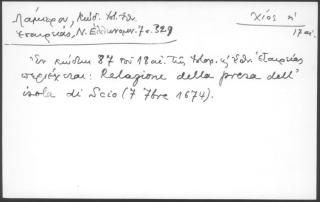 Λάμπρου, Κώδ. Ἱστ. Ἐθν.
Ἑταιρείας, Ν. Ἑλληνομν. 7 σ. 329
Χίος
17 αἰ.
Ἐν κώδικι 87 τοῦ 18 αἰ. τῆς Ἱστορ. κ' Ἐθν. Ἑταιρείας
περιέχεται: Relazione della presa dell'
isola di Scio (7 7bre 1674).